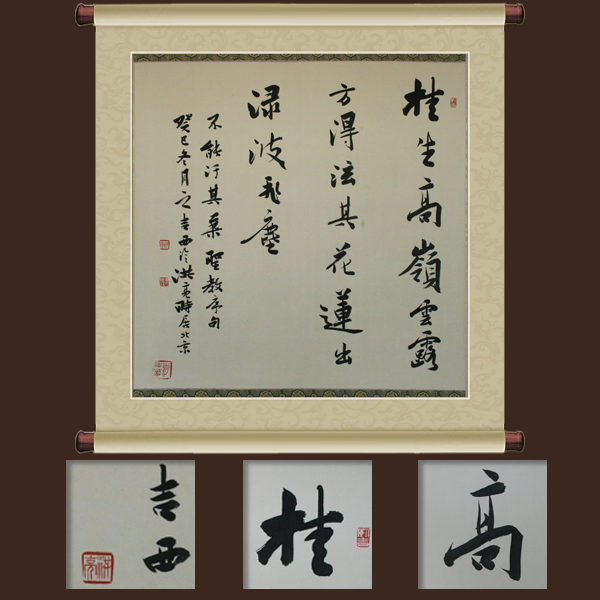 桂生高嶺雲露
方得泫其花蓮出
渌波飛塵
不能汙其葉聖教序句
癸巳冬月之吉西泠洪亮時居北京
吉西
洪亮
桂
高